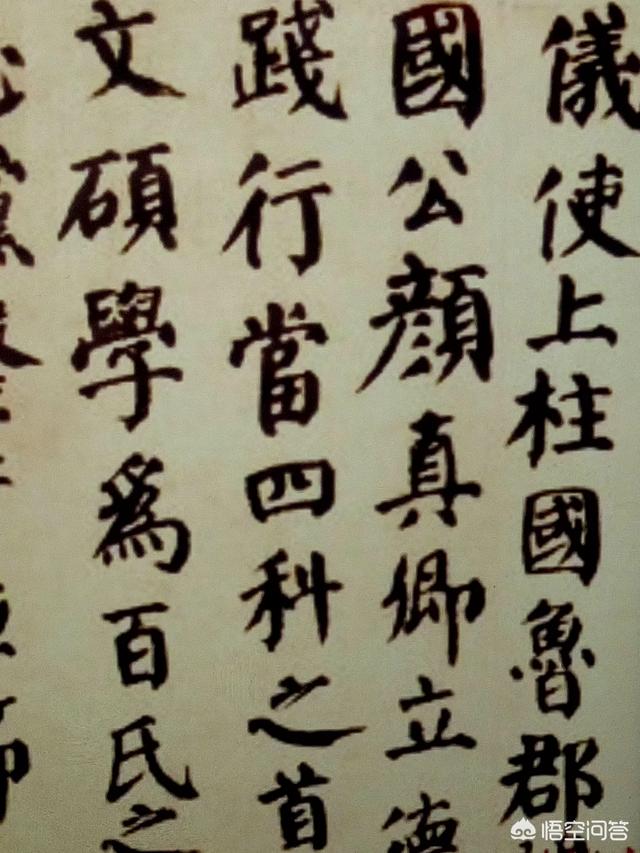 儀使上柱國魯郡
國公顏真卿立德
踐行當四科之首
文碩學爲百氏之
悟空问答